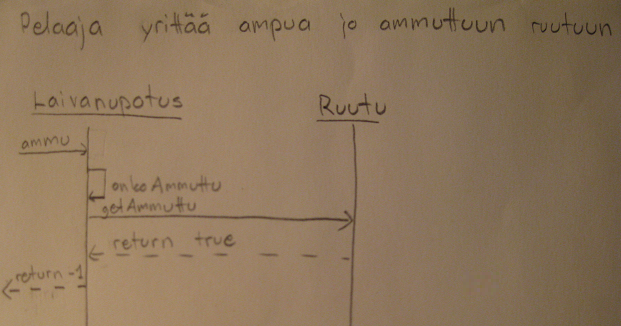 Pelaaja yrittää ampua jo ammuttuun ruutuun
Laivanupotus Ruutu
ammu
onko Ammuttu
getAmmuttu
return true
return -1